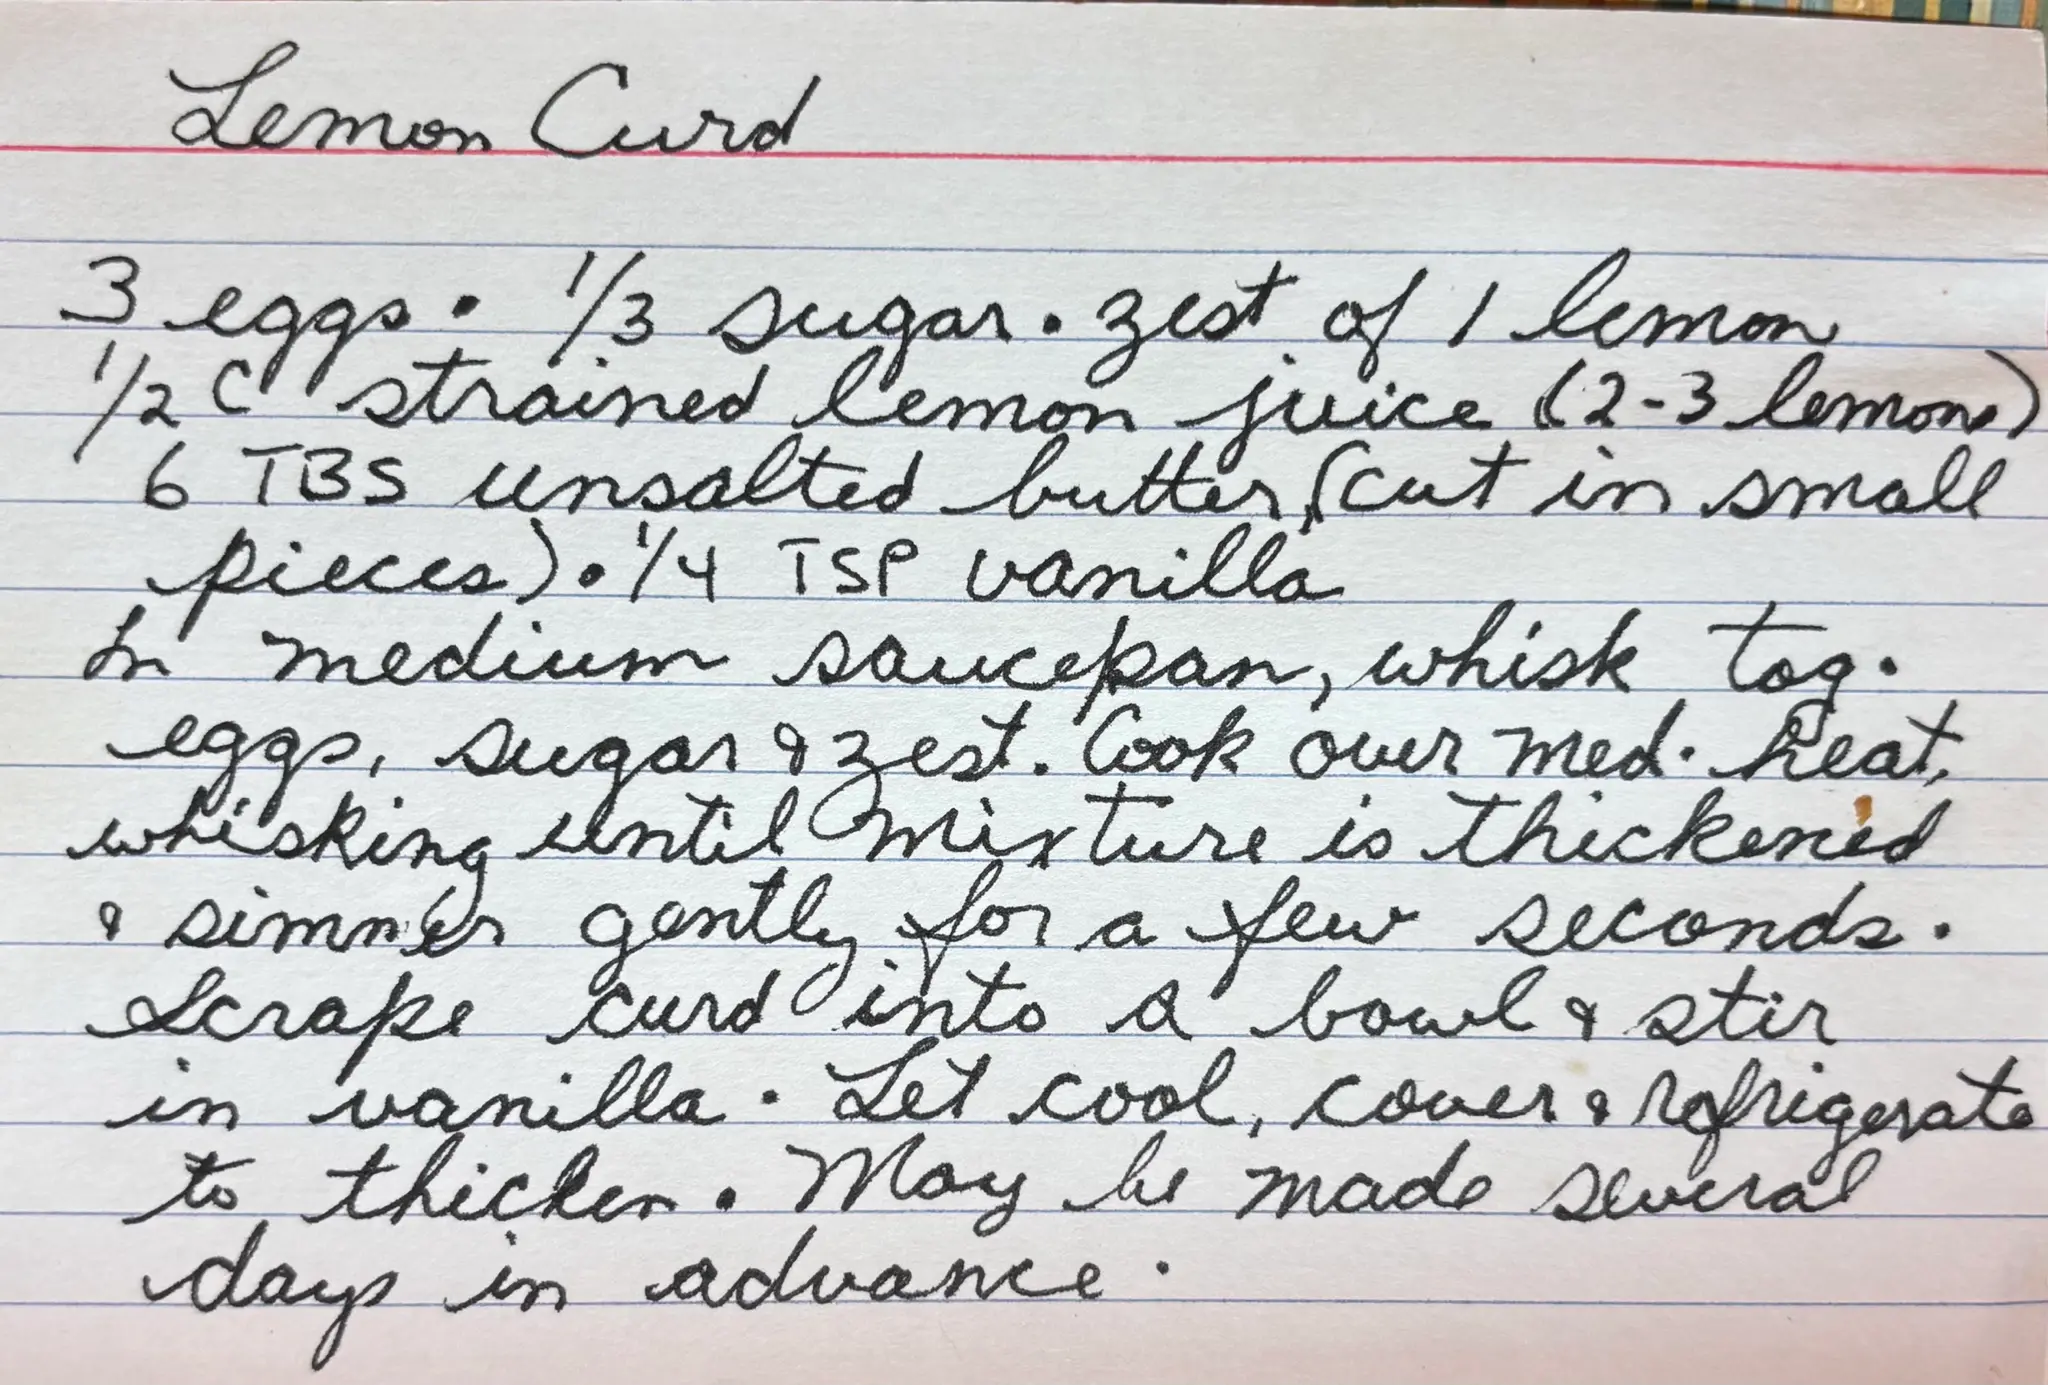 Lemon Curd
3 eggs • 1/3 sugar • zest of 1 lemon
1/2 C strained lemon juice (2-3 lemons)
6 TBS unsalted butter, (cut in small
pieces) • 1/4 TSP vanilla
In medium saucepan, whisk tog.
eggs, sugar & zest. Cook over med. heat,
whisking until mixture is thickened
& simmer gently for a few seconds.
Scrape curd into a bowl & stir
in vanilla. Let cool, cover & refrigerate
to thicken. May be made several
days in advance.